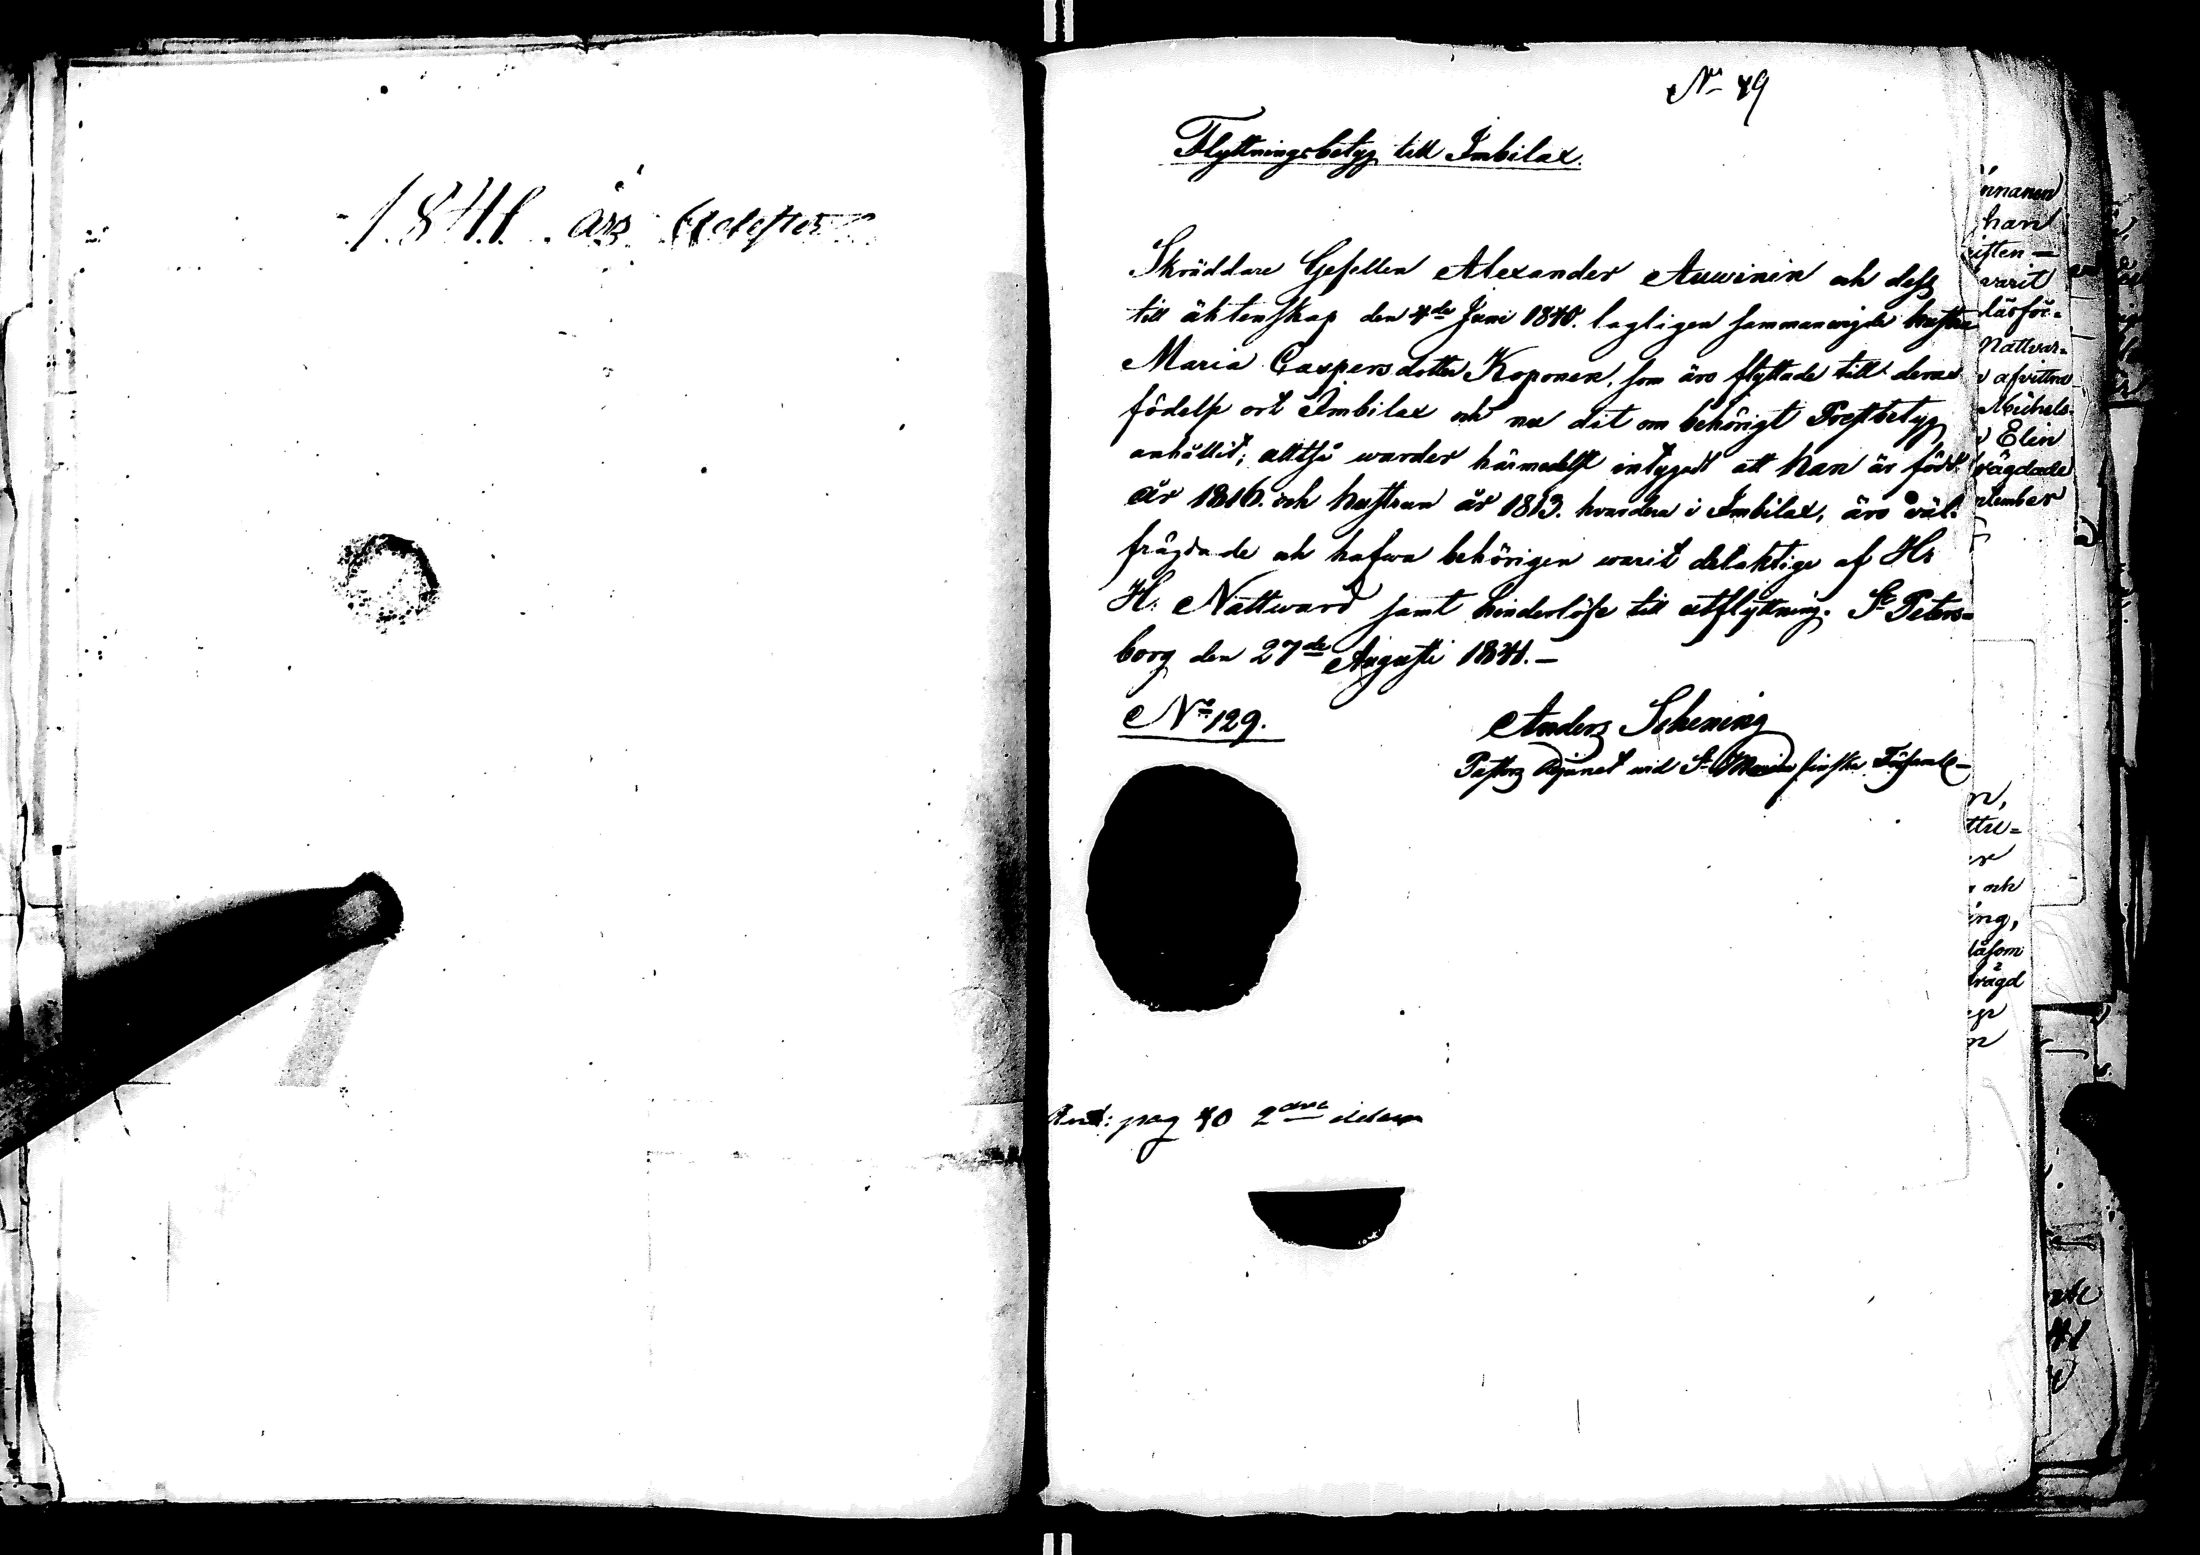 1841 års
No 49
Flyttningsbetyg till Imbilax.
Skräddare Gesellen Alexander Auwinin och dess
till äktenskap den 4de Juni 1840. lagligen sammanwigde hustru
Maria Caspersdotter Koponen, som äro flyttade till deras
födelse ort Imbilax och nu dit om behörigt Prestbetyg
anhållit; alltså warder härmedelst intygadt att han är född
år 1816. och hustrun år 1813. hvardera i Imbilax, äro wäl-
frägdade och hafwa behörigen warit delaktige af Hs
H. Nattward samt hinderlöse till utflyttning. St Peters-
borg den 27de Augusti 1841.-
No 129.
Anders Schening
Pastors Adjunct wid St Maria finska Församl-
Ant: pag 40 2dra delen
nnanen
han
ften —
varit
därför-
Nattvar-
afvittra
Michels-
Elin
frägdade
ptember
ttu-
och
ing,
såsom
frägd